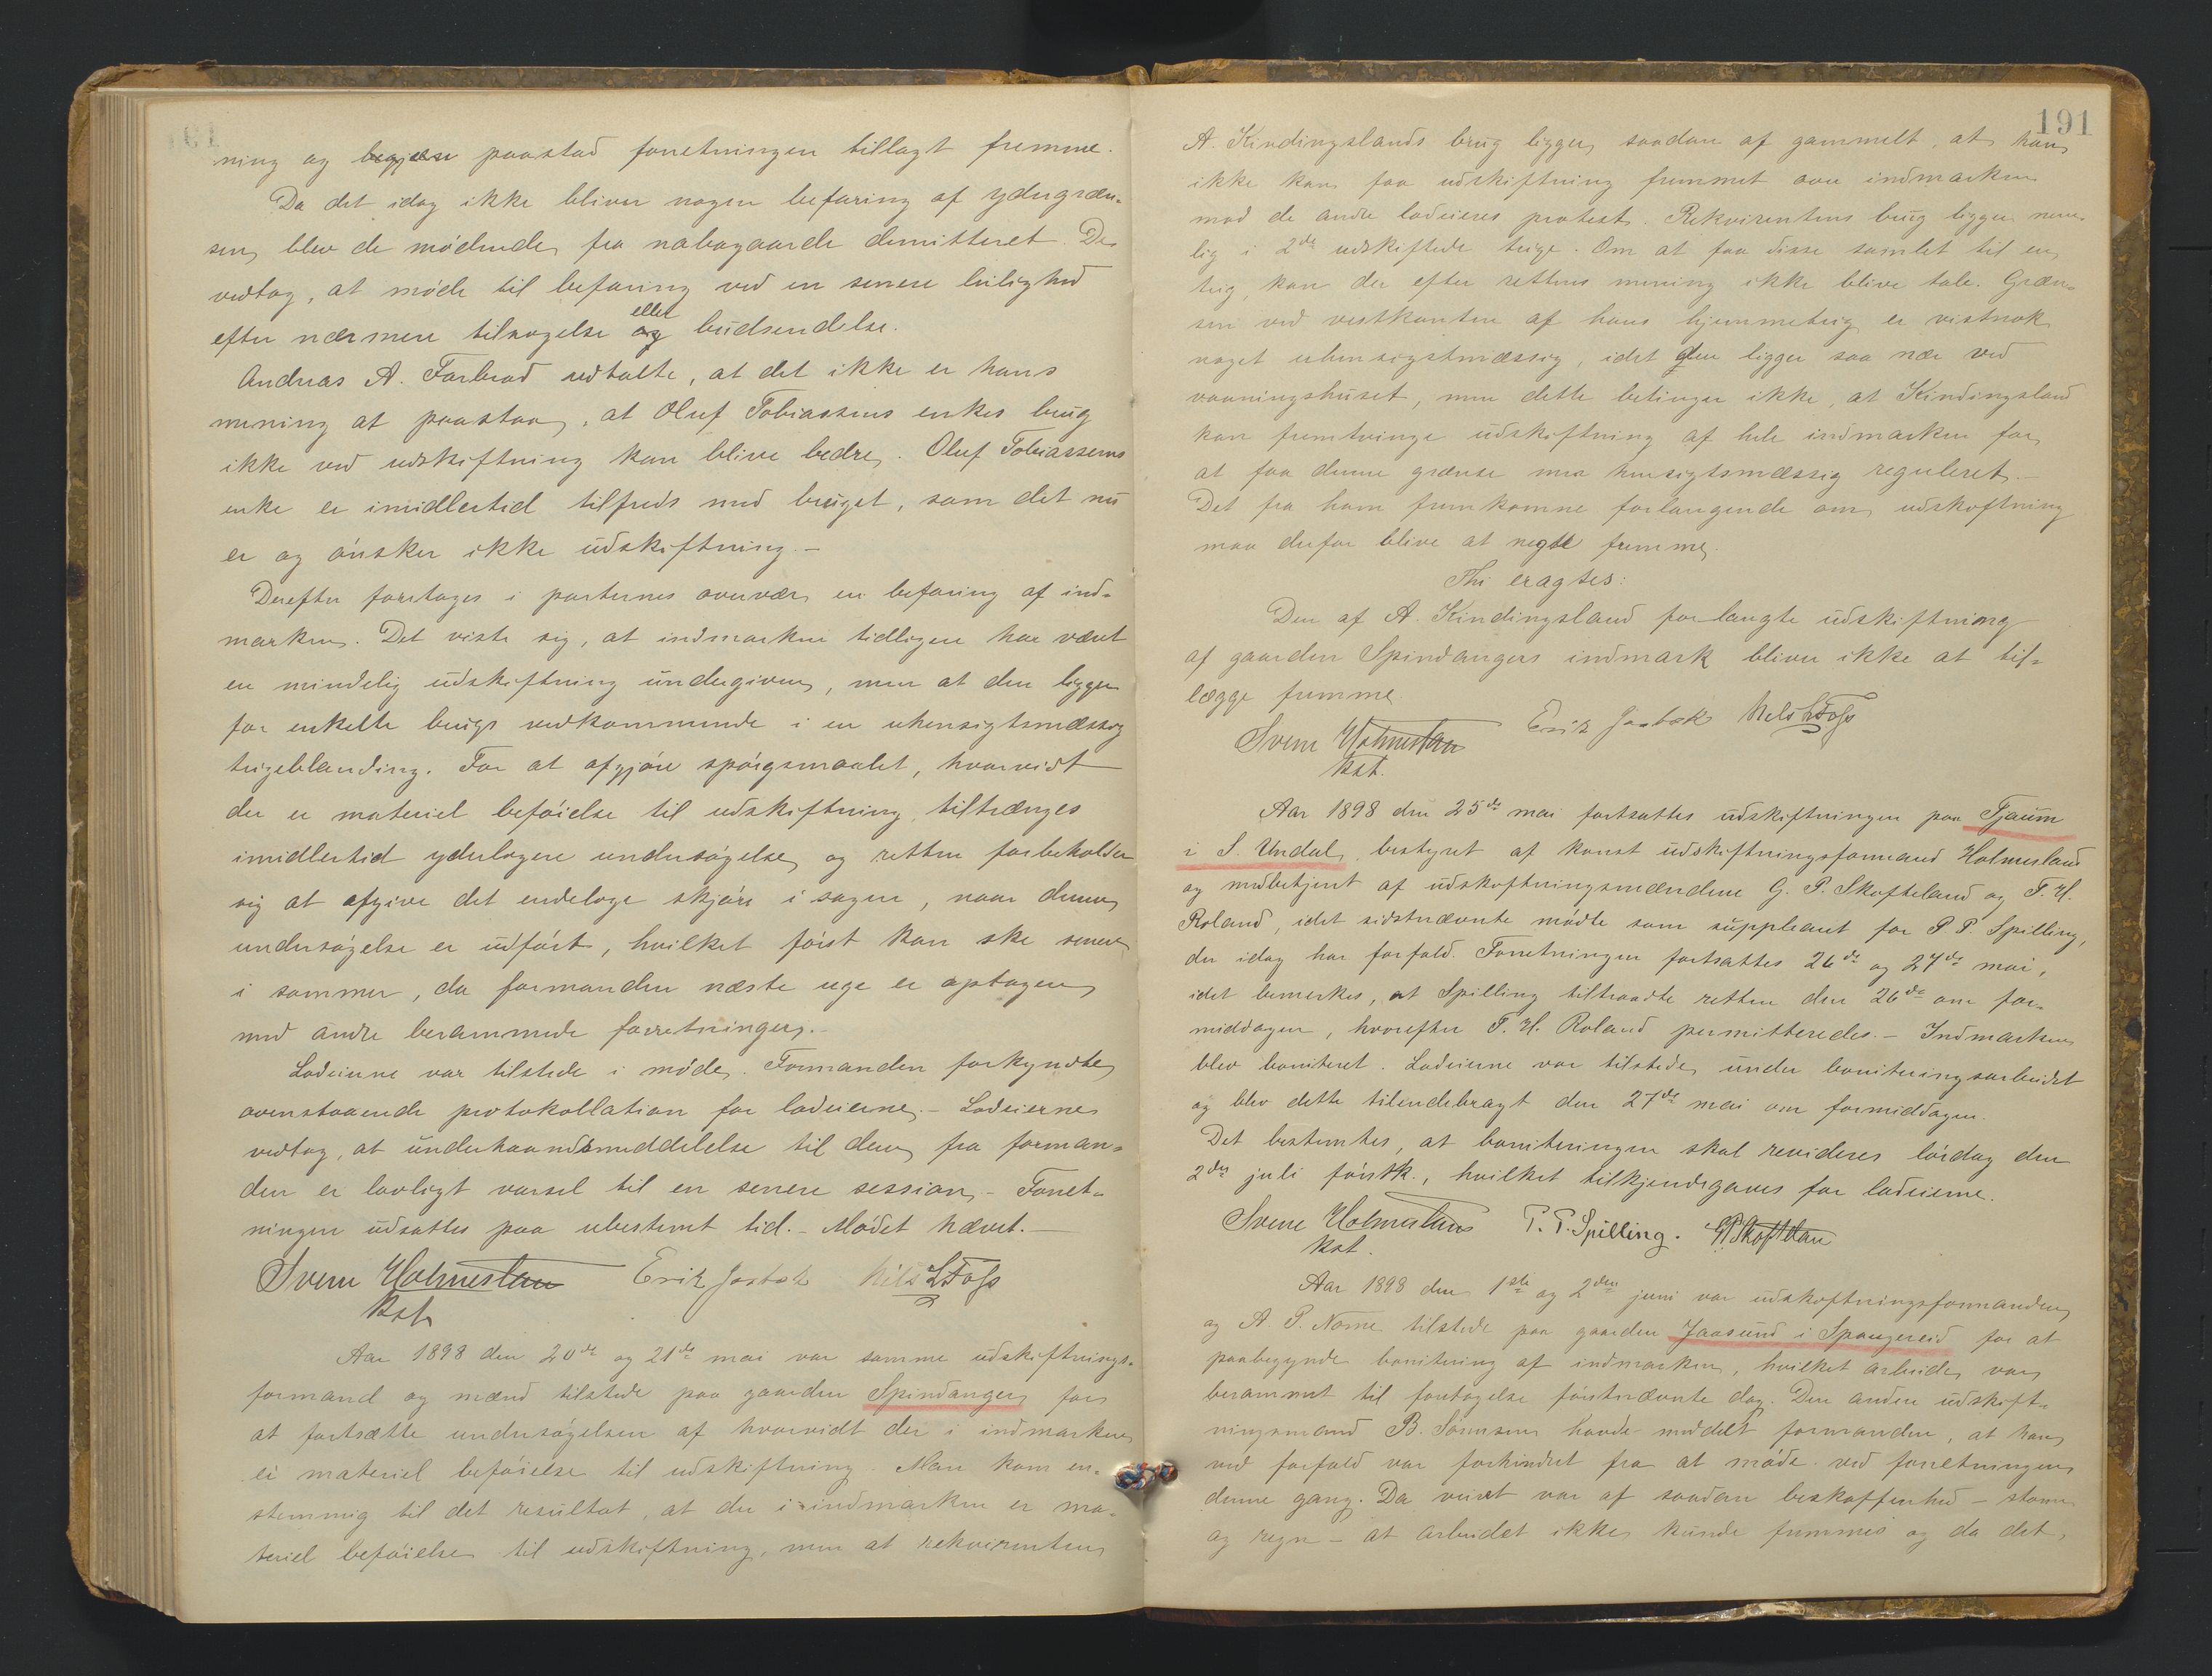 ning og begjær paastod forretningen tillagt fremme.
Da det idag ikke bliver nogen befaring af ydergræn-
sen, blev de mødende fra nabogaarde demitteret. De
vedtog, at møde til befaring ved en senere leilighed
efter nærmere tilsagelse eller budsendelse.
Andreas A. Farbrod udtalte, at det ikke er hans
mening at paastaa, at Oluf Tobiassens enkes brug
ikke ved udskiftning kan blive bedre. Oluf Tobiassens
enke er imidlertid tilfreds med bruget, som det nu
er og ønsker ikke udskiftning.-
Derefter foretoges i parternes overvær en befaring af ind-
marken. Det viste sig, at indmarken tidligere har været
en mindelig udskiftning undergiven, men at den ligger
for enkelte brugs vedkommende i en uhensigtsmæssig
teigeblanding. For at afgjøre spørgsmaalet, hvorvidt
der er materiel beføielse til udskiftning, tiltrænges
imidlertid yderligere undersøgelse og retten forbeholder
sig at afgive det endelige skjøn i sagen, naar denne
undersøgelse er udført, hvilket først kan ske senere
i sommer, da formanden næste uge er optagen
med andre berammede forretninger.-
Lodeierne var tilstede i møde. Formanden forkyndte
ovenstaaende protokollation for lodeierne.- Lodeierne
vedtog, at underhaandsmeddelelse til dem fra forman-
den er lovligt varsel til en senere session.- Forret-
ningen udsattes paa ubestemt tid.- Mødet hævet.-
Svenn Holmesland Erik Jaabæk Nils L Foss
Kst.
Aar 1898 den 20de og 21de mai var samme udskiftnings-
formand og mænd tilstede paa gaarden Spindanger for
at fortsætte undersøgelsen af hvorvidt der i indmarken
er materiel beføielse til udskiftning. Man kom en-
stemmig til det resultat, at der i indmarken er ma-
teriel beføielse til udskiftning, men at rekvirenten
191
A. Kindingslands brug ligger saadan af gammelt, at han
ikke kan faa udskiftning fremmet over indmarken
mod de andre lodeieres protest. Rekvirentens brug ligger nem-
lig i 2de udskiftede teige. Om at faa disse samlet til en
teig, kan der efter rettens mening ikke blive tale. Græn-
sen ved vestkanten af hans hjemmeteig er vistnok
noget uhensigstmæssig, idet den ligger saa nær ved
vaaningshuset, men dette betinger ikke, at Kindingsland
kan fremtvinge udskiftning af hele indmarken for
at faa denne grænse mer hensigtsmæssig reguleret.-
Det fra ham fremkomne forlangende om udskiftning
maa derfor blive at negte fremme.
Thi eragtes:
Den af A. Kindingsland forlangte udskiftning
af gaarden Spindangers indmark bliver ikke at til-
lægge fremme.
Svenn Holmesland Erik Jaabæk Nils L Foss
Kst.
Aar 1898 den 25de mai fortsattes udskiftningen paa Tjaum
i S. Undal, bestyret af konst udskiftningsformand Holmesland
og medbetjent af udskiftningsmændene G. P. Skofteland og T. H.
Roland, idet sidstnævnte mødte som suppleant for P. P. Spilling,
der idag har forfald. Forretningen fortsattes 26de og 27de mai,
idet bemerkes, at Spilling tiltraadte retten den 26de om for-
middagen, hvorefter T. H. Roland permitteredes.- Indmarken
blev boniteret. Lodeierne var tilstede under boniteringsarbeidet
og blev dette tilendebragt den 27de mai om formiddagen.
Det bestemtes, at boniteringen skal revideres lørdag den
2den juli førstk., hvilket tilkjendegaves for lodeierne.
Svenn Holmesland P. P. Spilling. G P Skofteland
Kst.
Aar 1898 den 1ste og 2den juni var udskiftningsformanden
og A. P. Nome tilstede paa gaarden Jaasund i Spangereid for at
paabegynde bonitering af indmarken, hvilket arbeide var
berammet til foretagelse førstnævnte dag. Den anden udskift-
ningsmand B. Sørensen havde meddelt formanden, at han
ved forfald var forhindret fra at møde ved forretningen
denne gang. Da veiret var af saadan beskaffenhed - storm
og regn - at arbeidet ikke kunde fremmes og da det,